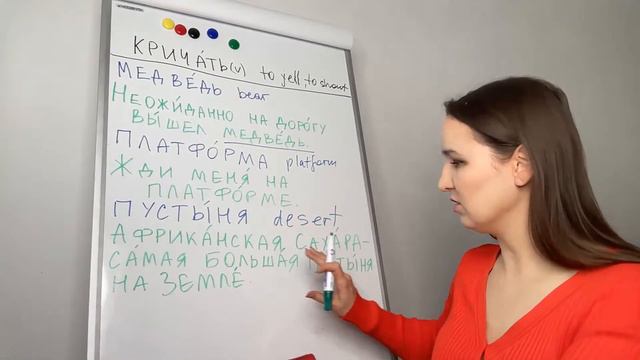 КРИЧА́ТЬ(v) to yell, to shout
МЕДВЕ́ДЬ bear
НЕОЖИ́ДАННО НА ДОРО́ГУ
ВЫ́ШЕЛ МЕДВЕ́ДЬ.
ПЛАТФО́РМА platform
ЖДИ МЕНЯ́ НА
ПЛАТФО́РМЕ.
ПУСТЫ́НЯ desert
АФРИКА́НСКАЯ САХА́РА-
СА́МАЯ БОЛЬША́Я
НА ЗЕМЛЕ́